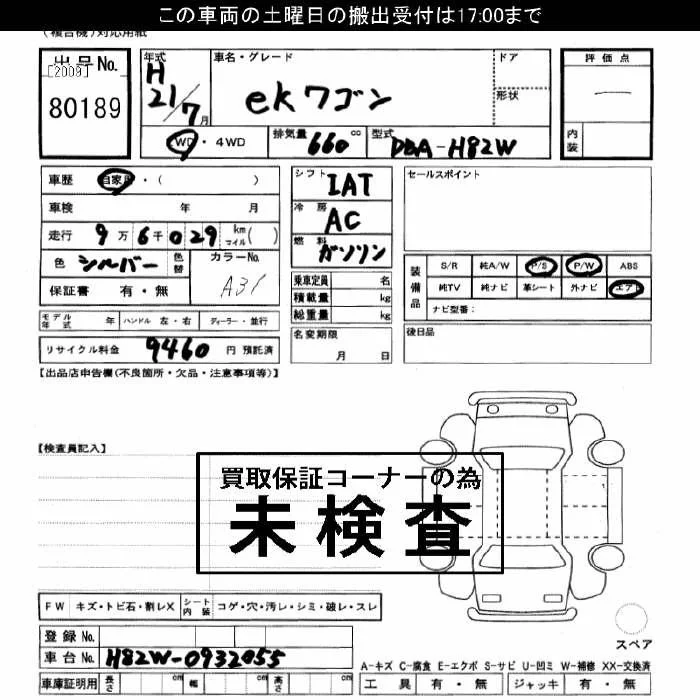 この車両の土曜日の搬出受付は17:00まで
(複合機)対応用紙
出品No. [2009] 80189
年式 H 21/7月
車名・グレード ekワゴン
ドア
形状
評価点 —
内装
2WD・4WD
排気量 660 cc
型式 DBA-H82W
車歴 自家用・( )
車検 年 月
走行 9万6千029 km マイル( )
色 シルバー 色替
カラーNo. A31
保証書 有・無
シフト IAT
冷房 AC
燃料 ガソリン
乗車定員 名
積載量 kg
総重量 kg
セールスポイント
装備品 S/R 純A/W P/S P/W ABS
純TV 純ナビ 革シート 外ナビ エアB
ナビ型番:
モデル年式 年 ハンドル 左・右 ディーラー・並行
名変期限 月 日
後日品
リサイクル料金 9460 円 預託済
【出品店申告欄(不良箇所・欠品・注意事項等)】
【検査員記入】
買取保証コーナーの為
未検査
FW キズ・トビ石・割レX シート内装 コゲ・穴・汚レ・シミ・破レ・スレ
登録No.
車台No. H82W-0932055
スペア
A-キズ C-腐食 E-エクボ S-サビ U-凹ミ W-補修 XX-交換済
車庫証明用 長さ cm 幅 cm 高さ cm
工具 有・無 ジャッキ 有・無